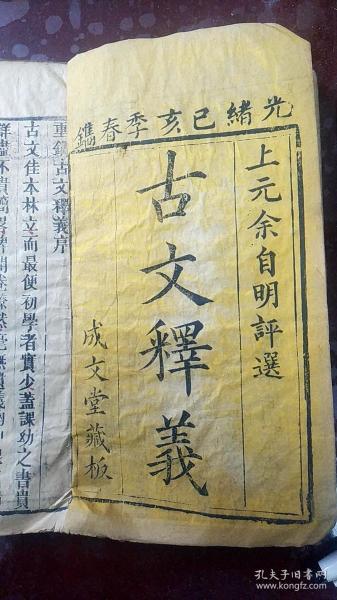 光緒已亥季春鐫
上元余自明評選
古文釋義
成文堂藏板
重鐫古文釋義序
古文佳本林立而最便初學者實少蓋課幼之書貴
孔夫子旧书网